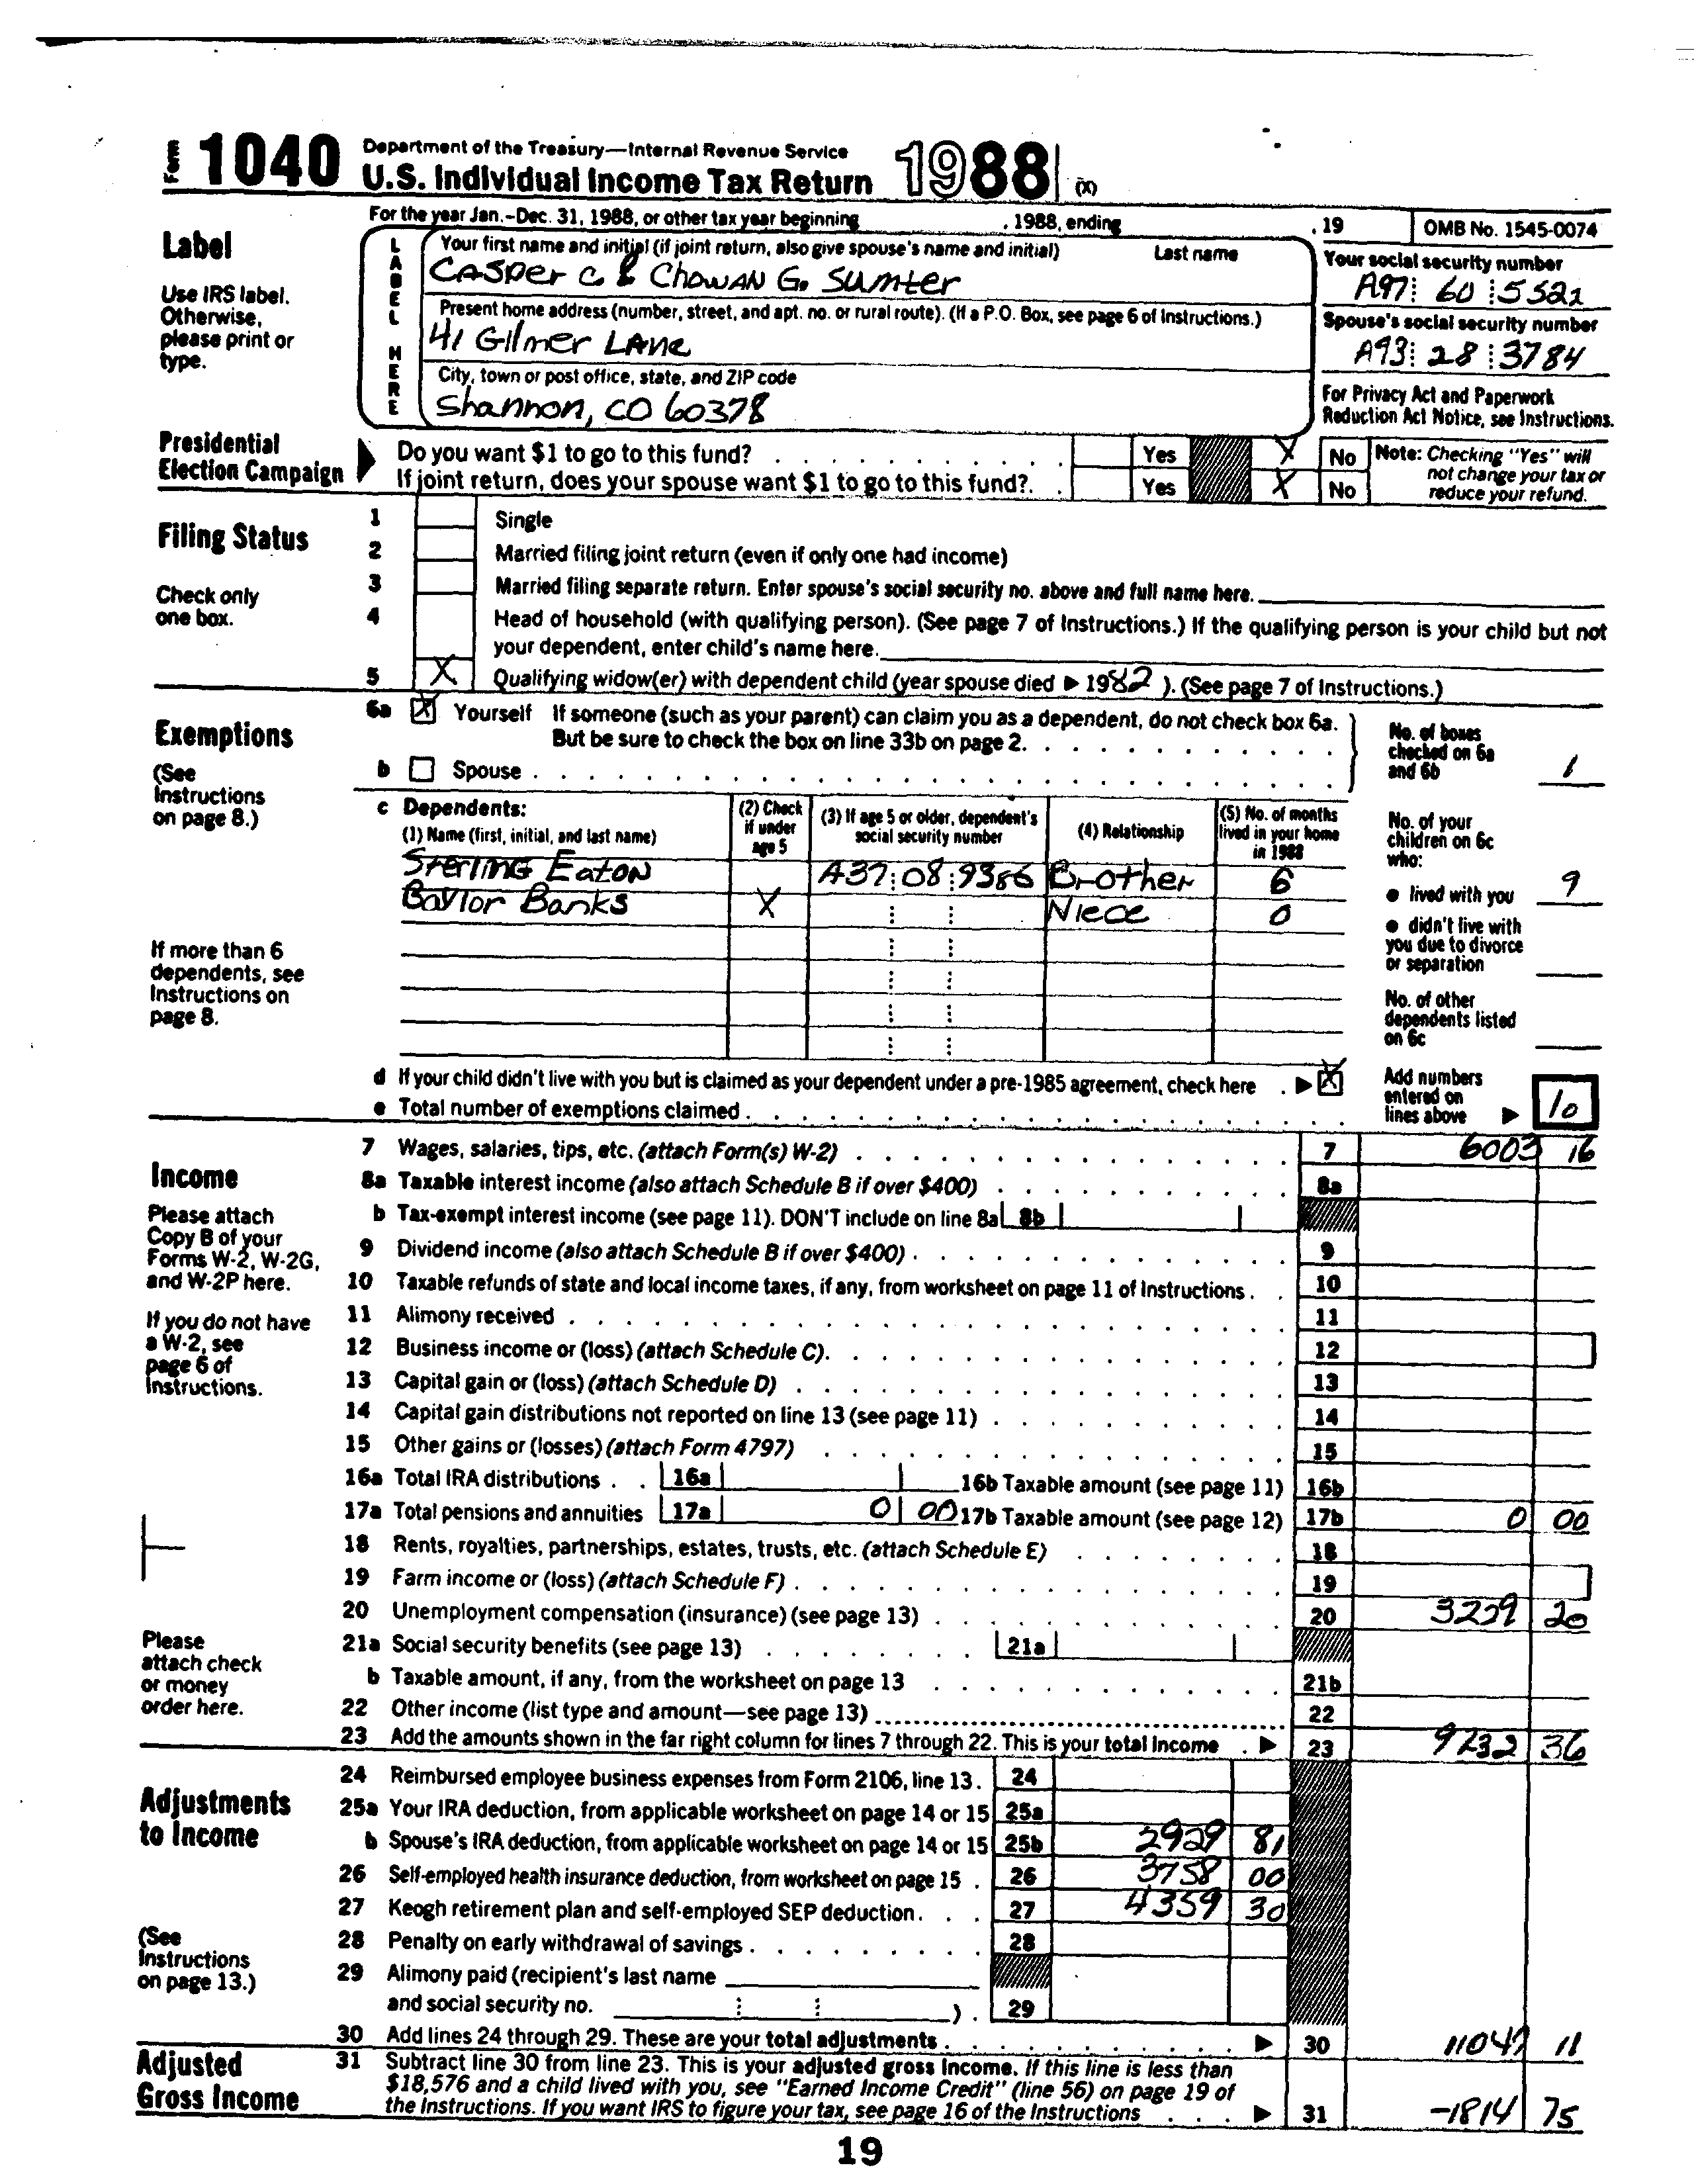 Form 1040 Department of the Treasury—Internal Revenue Service
U.S. Individual Income Tax Return 1988 (X)
For the year Jan.-Dec. 31, 1988, or other tax year beginning , 1988, ending , 19 OMB No. 1545-0074
Label
Use IRS label. Otherwise, please print or type.
LABEL HERE
Your first name and initial (if joint return, also give spouse's name and initial) Last name
Casper C & Chowan G. Sumter
Your social security number
A97 60 5521
Present home address (number, street, and apt. no. or rural route). (If a P.O. Box, see page 6 of Instructions.)
41 Gilmer Lane
Spouse's social security number
A93 28 3784
City, town or post office, state, and ZIP code
Shannon, CO 60378
For Privacy Act and Paperwork Reduction Act Notice, see Instructions.
Presidential Election Campaign
Do you want $1 to go to this fund? Yes X No
If joint return, does your spouse want $1 to go to this fund? Yes X No
Note: Checking "Yes" will not change your tax or reduce your refund.
Filing Status
Check only one box.
1 Single
2 Married filing joint return (even if only one had income)
3 Married filing separate return. Enter spouse's social security no. above and full name here.
4 Head of household (with qualifying person). (See page 7 of Instructions.) If the qualifying person is your child but not
your dependent, enter child's name here.
5 X Qualifying widow(er) with dependent child (year spouse died ▶ 1982 ). (See page 7 of Instructions.)
Exemptions
(See Instructions on page 8.)
6a X Yourself If someone (such as your parent) can claim you as a dependent, do not check box 6a.
But be sure to check the box on line 33b on page 2.
b Spouse
No. of boxes checked on 6a and 6b 1
c Dependents:
(1) Name (first, initial, and last name) (2) Check if under age 5 (3) If age 5 or older, dependent's social security number (4) Relationship (5) No. of months lived in your home in 1988
Sterling Eaton A37 08 9386 Brother 6
Baylor Banks X Niece 0
If more than 6 dependents, see Instructions on page 8.
No. of your children on 6c who:
● lived with you 9
● didn't live with you due to divorce or separation
No. of other dependents listed on 6c
d If your child didn't live with you but is claimed as your dependent under a pre-1985 agreement, check here ▶ X
e Total number of exemptions claimed
Add numbers entered on lines above ▶ 10
Income
Please attach Copy B of your Forms W-2, W-2G, and W-2P here.
If you do not have a W-2, see page 6 of Instructions.
Please attach check or money order here.
7 Wages, salaries, tips, etc. (attach Form(s) W-2) 7 6003 16
8a Taxable interest income (also attach Schedule B if over $400) 8a
b Tax-exempt interest income (see page 11). DON'T include on line 8a 8b
9 Dividend income (also attach Schedule B if over $400) 9
10 Taxable refunds of state and local income taxes, if any, from worksheet on page 11 of Instructions 10
11 Alimony received 11
12 Business income or (loss) (attach Schedule C) 12
13 Capital gain or (loss) (attach Schedule D) 13
14 Capital gain distributions not reported on line 13 (see page 11) 14
15 Other gains or (losses) (attach Form 4797) 15
16a Total IRA distributions 16a 16b Taxable amount (see page 11) 16b
17a Total pensions and annuities 17a 0 00 17b Taxable amount (see page 12) 17b 0 00
18 Rents, royalties, partnerships, estates, trusts, etc. (attach Schedule E) 18
19 Farm income or (loss) (attach Schedule F) 19
20 Unemployment compensation (insurance) (see page 13) 20 3229 20
21a Social security benefits (see page 13) 21a
b Taxable amount, if any, from the worksheet on page 13 21b
22 Other income (list type and amount—see page 13) 22
23 Add the amounts shown in the far right column for lines 7 through 22. This is your total income ▶ 23 9232 36
Adjustments to Income
(See Instructions on page 13.)
24 Reimbursed employee business expenses from Form 2106, line 13. 24
25a Your IRA deduction, from applicable worksheet on page 14 or 15 25a
b Spouse's IRA deduction, from applicable worksheet on page 14 or 15 25b 2929 81
26 Self-employed health insurance deduction, from worksheet on page 15 26 3758 00
27 Keogh retirement plan and self-employed SEP deduction 27 4359 30
28 Penalty on early withdrawal of savings 28
29 Alimony paid (recipient's last name
and social security no. ) 29
30 Add lines 24 through 29. These are your total adjustments ▶ 30 11047 11
Adjusted Gross Income
31 Subtract line 30 from line 23. This is your adjusted gross income. If this line is less than
$18,576 and a child lived with you, see "Earned Income Credit" (line 56) on page 19 of
the Instructions. If you want IRS to figure your tax, see page 16 of the Instructions ▶ 31 -1814 75
19